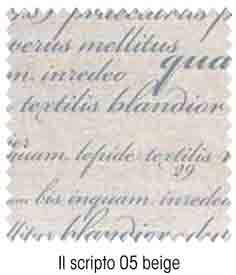 verus mellitus
m. inredeo qua
textilis blandior
quam. lepide textilis
29
bis inquam. inredeo
blandior
Il scripto 05 beige